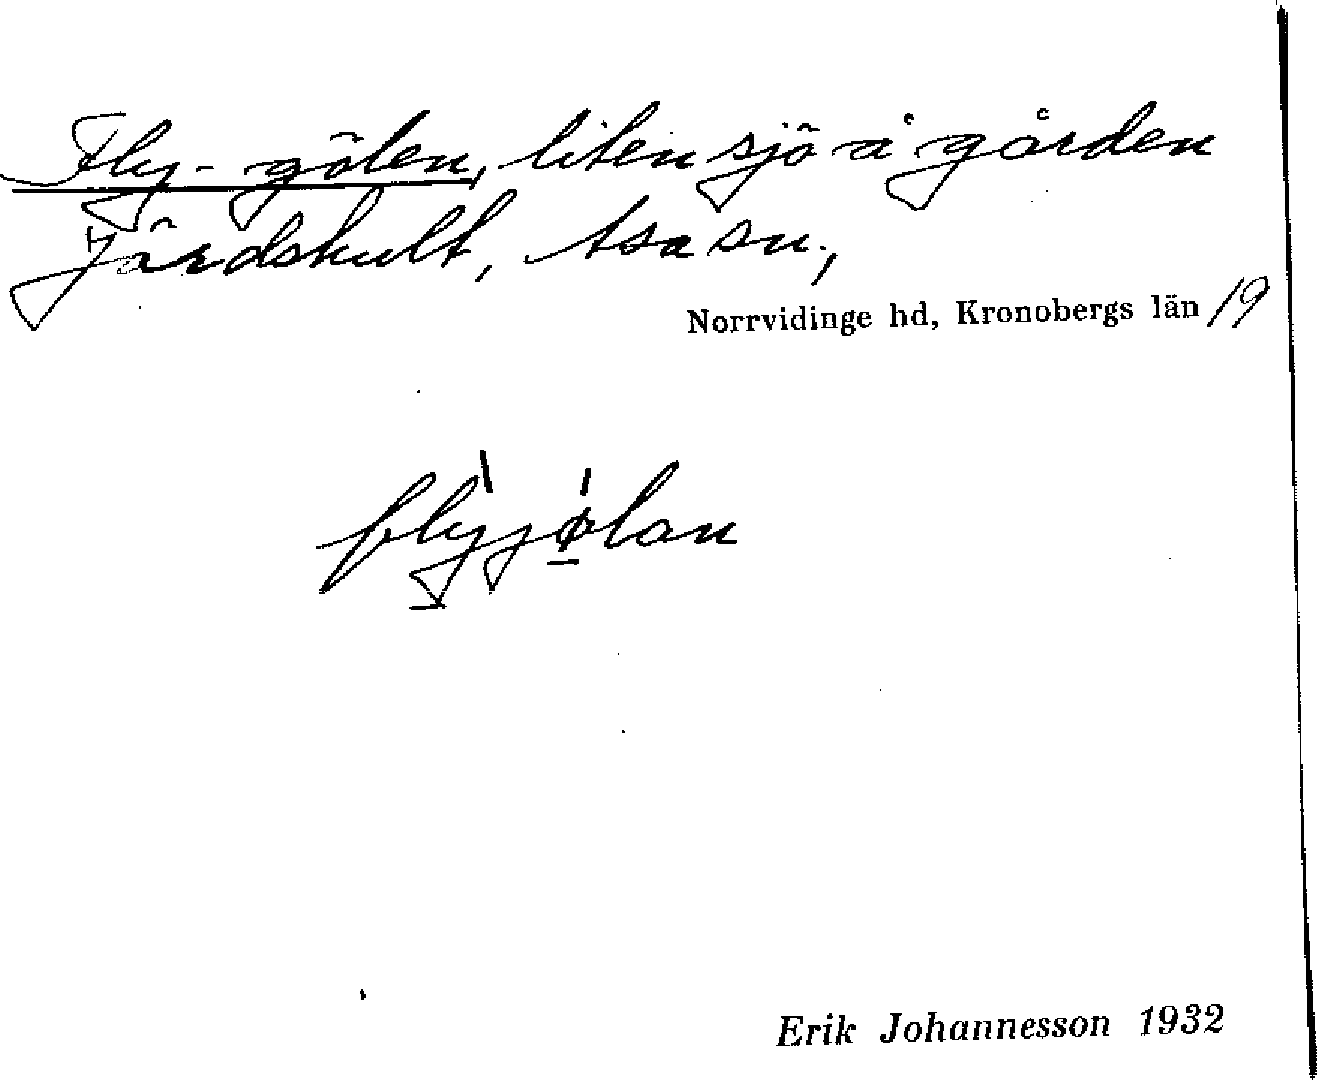 Fly-gölen, liten sjö å gården
Järdskult,
Norrvidinge hd, Kronobergs län /9
flyjølan
Erik Johannesson 1932